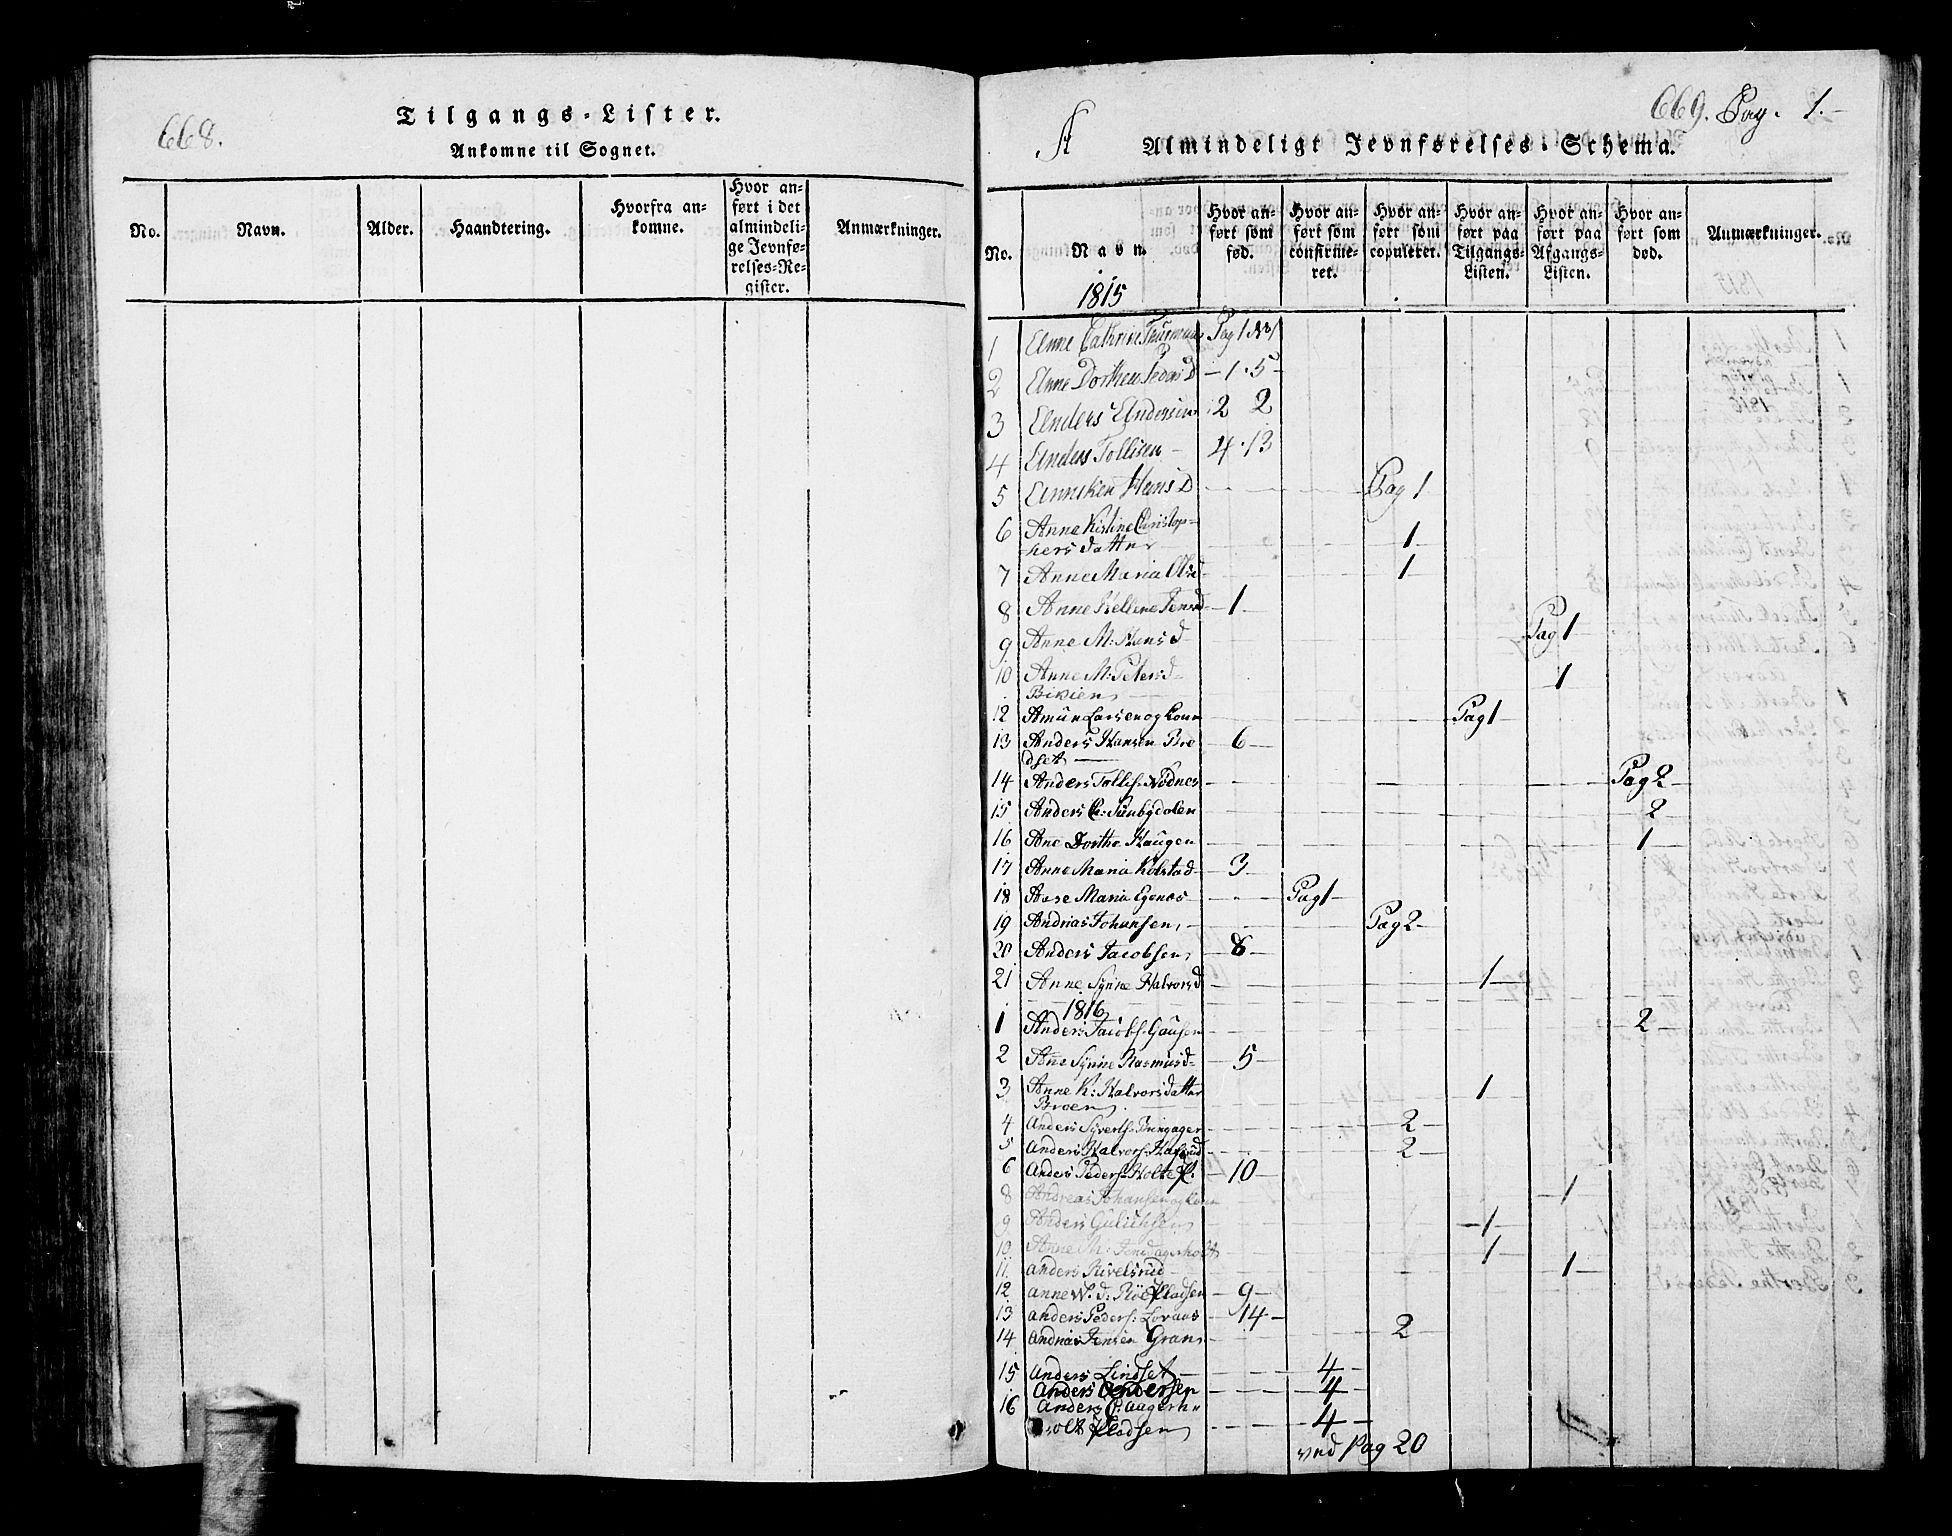 668.
Tilgangs-Lister.
Ankomne til Sognet.
No.
Navn.
Alder.
Haandtering.
Hvorfra ankomne.
Hvor anført i det almindelige Jevnførelses-Register.
Anmærkninger.
669. Pag. 1.-
A
Almindeligt Jevnførelses-Schema.
No.
Navn.
Hvor anført som fød.
Hvor anført som confirmeret.
Hvor anført som copuleret.
Hvor anført paa Tilgangs-Listen.
Hvor anført paa Afgangs-Listen.
Hvor anført som død.
Anmærkninger.
1815
1 Anne Cathrine Pag 1
2 Anne Dorthea Peders D - 1 . 5 -
3 Anders Andersen 2 2
4 Anders Tollisen - 4 . 13
5 Anniken Hans D Pag 1
6 Anne Kistine Christop-
hers datter 1
7 Anne Maria Olsd 1
8 Anne Hellene Jensd - 1 -
9 Anne M: Hansd Pag 1
10 Anne M: Petersd 1
12 Amun Larsen og Kone Pag 1
13 Anders Hansen Bre 6 -
dset
14 Anders Tollefs: Nødnes Pag 2
15 Anders 2
16 Ane Dorthe Haugen 1
17 Anne Maria Kolstad - 3 -
18 Aase Maria Egenes Pag 1
19 Andrias Johansen, - Pag 2 -
20 Anders Jacobsen - 8 -
21 Anne Synne Halvorsd 1
1816
1 Anders Jacobs: 2
2 Ane Synne Rasmusd - - 5 -
3 Anne K: Halvorsdatter 1
Broen
4 Anders Syverts: 2
5 Anders Halvors: 2
6 Anders Peders: Holte - 10 -
8 Andreas Johansen og Kone 1
9 Anders Gulichsen - 1
10 Anne M: 1
11 Anders 1
12 Anne - 9 -
13 Anders Peders: - 14 -
14 Andrias Jensen Gran 2
15 Anders Lindset 4 -
Anders Andersen 4
16 Anders
Pladsen 4 -
ved Pag 20